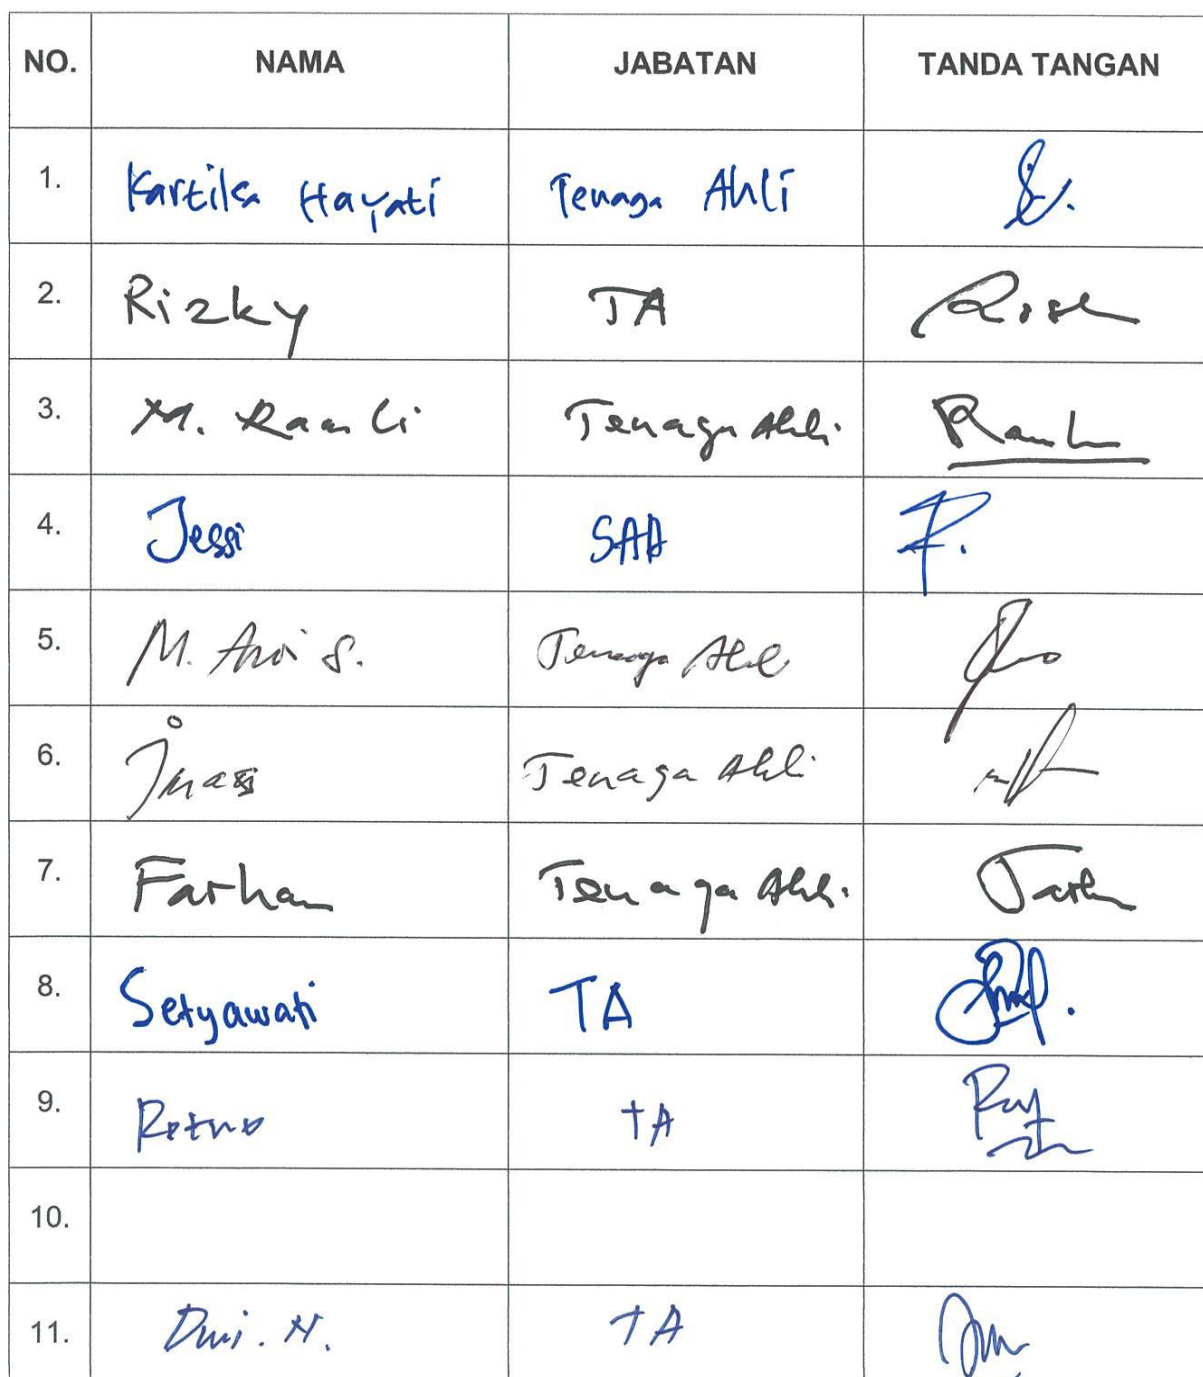 NO. NAMA JABATAN TANDA TANGAN
1. Kartika Hayati Tenaga Ahli
2. Rizky TA
3. M. Ramli Tenaga Ahli
4. Jessi SAA
5. M. S. Tenaga Ahli
6. Tenaga Ahli
7. Farhan Tenaga Ahli
8. Setyawati TA
9. Retno TA
10.
11. Dwi. N. TA